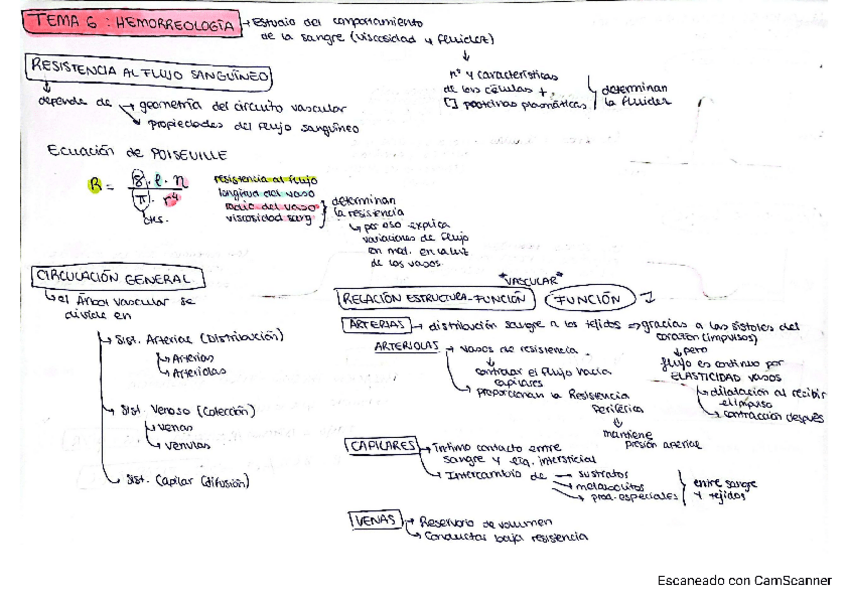 TEMA 6: HEMORREOLOGÍA → Estudio del comportamiento
de la sangre (viscosidad y fluidez)
nº y características
de las células +
[] proteínas plasmáticas
determinan
la fluidez
RESISTENCIA AL FLUJO SANGUÍNEO
depende de → geometría del circuito vascular
propiedades del flujo sanguíneo
Ecuación de POISEVILLE
R = 8 · l · η
π · r⁴
ctes.
resistencia al flujo
longitud del vaso
radio del vaso
viscosidad sang
determinan
la resistencia
por eso explica
variaciones de flujo
en la luz
de los vasos.
CIRCULACIÓN GENERAL
el Árbol vascular se
divide en
Sist. Arterial (Distribución)
Arterias
Arteriolas
Sist. Venoso (Colección)
venas
venulas
Sist. Capilar (difusión)
"VASCULAR"
RELACIÓN ESTRUCTURA-FUNCIÓN (FUNCIÓN)
ARTERIAS → distribución sangre a los tejidos ⇒ gracias a las sístoles del
corazón (impulsos)
pero
flujo es continuo por
ELASTICIDAD VASOS
dilatación al recibir
el impulso
contracción después
ARTERIOLAS → vasos de resistencia
controlar el flujo hacia
capilares
proporcionan la Resistencia
Periférica
mantiene
presión arterial
CAPILARES → Íntimo contacto entre
sangre y líq. intersticial
Intercambio de → sustratos
metabolitos
prod. especiales
entre sangre
y tejidos
VENAS → Reservorio de volumen
Conductas baja resistencia
Escaneado con CamScanner